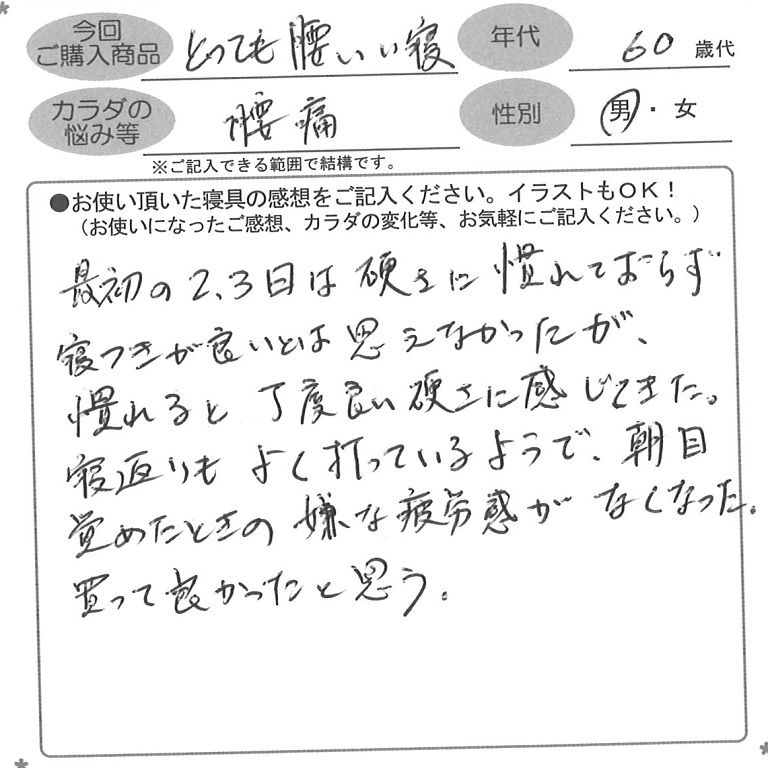 今回
ご購入商品
とっても腰いい寝
年代
60 歳代
カラダの
悩み等
腰痛
性別
男・女
※ご記入できる範囲で結構です。
●お使い頂いた寝具の感想をご記入ください。イラストもOK！
（お使いになったご感想、カラダの変化等、お気軽にご記入ください。）
最初の2、3日は硬さに慣れておらず
寝つきが良いとは思えなかったが、
慣れると丁度良い硬さに感じてきた。
寝返りもよく打っているようで、朝目
覚めたときの嫌な疲労感がなくなった。
買って良かったと思う。